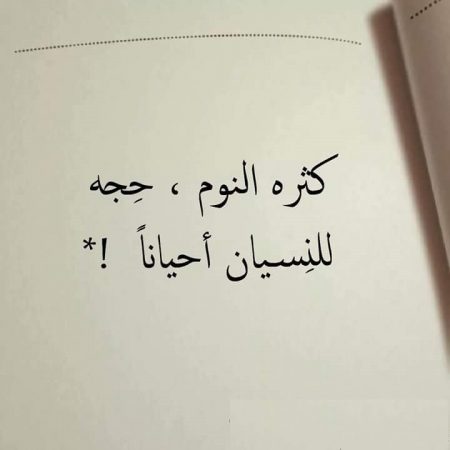 كثره النوم ، حِجه
للنِسيان أحياناً !*